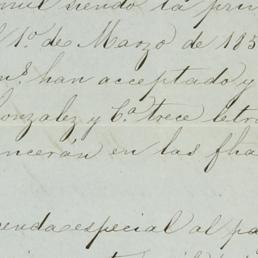 mil siendo la pri
1.º de Marzo de 185
han aceptado y
Gonzalez y C.ª trece letra
ncerán en las fha
enda especial al pa